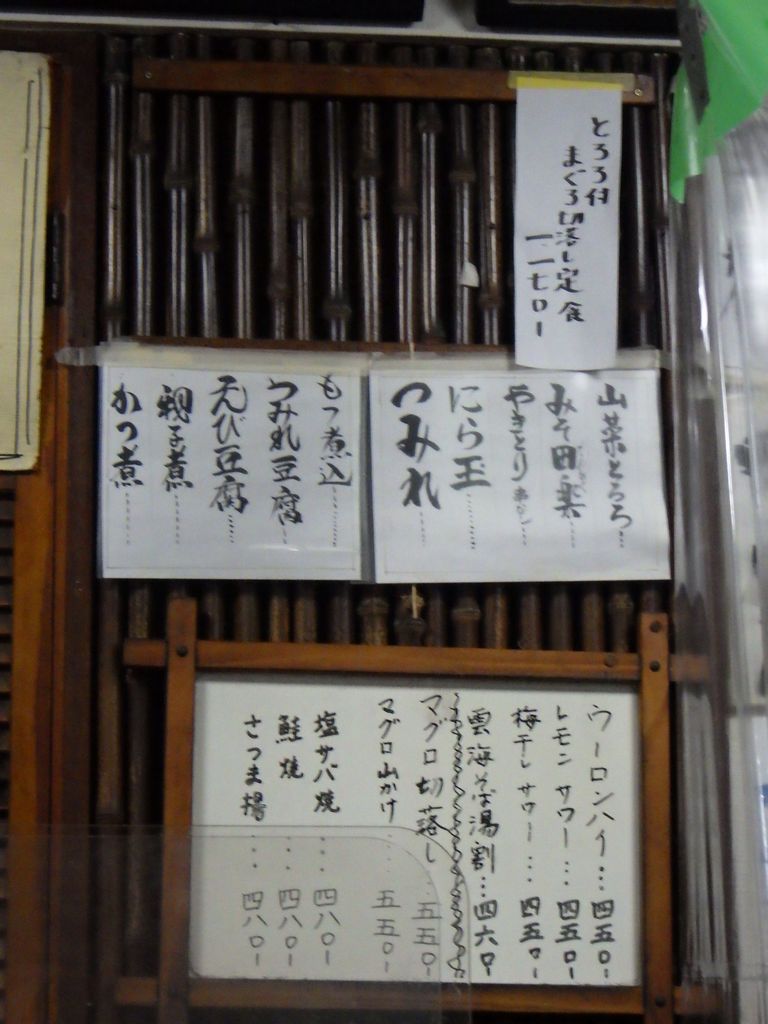 とろろ付
まぐろ切落し定食
一、一七〇ー
山菜とろろ……
みそ田楽……
やきとり……
にら玉……
つみれ……
もつ煮込……
つみれ豆腐……
えび豆腐……
親子煮……
かつ煮……
ウーロンハイ…四五〇ー
レモンサワー…四五〇ー
梅干しサワー…四五〇ー
雲海そば湯割…四六〇ー
マグロ切落し…五五〇ー
マグロ山かけ…五五〇ー
塩サバ焼…四八〇ー
鮭焼…四八〇ー
さつま揚…四八〇ー